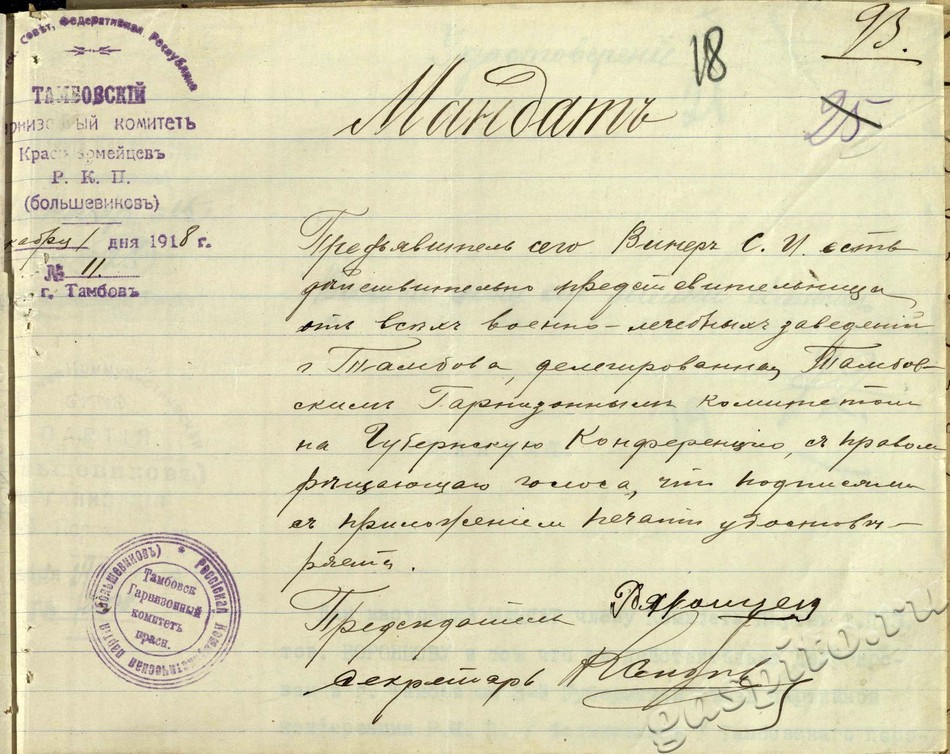 Совѣт. Федеративная Республика
ТАМБОВСКІЙ
комитетъ
Красноармейцевъ
Р. К. П.
(большевиковъ)
кабря 1 дня 1918 г.
№ 11.
г. Тамбовъ
18
93.
25
Мандатъ
Предъявитель сего Винеръ С. И. есть
дѣйствительно представительница
отъ всѣхъ военно-лечебныхъ заведеній
г Тамбова, делегированная Тамбов-
скимъ Гарнизоннымъ комитетом
на Губернскую Конференцію, съ правом
рѣшающаго голоса, что подписями
съ приложеніем печати удостовѣ-
ряетъ.
Предсѣдатель
Секретарь
Россійская Коммунистическая партія (большевиковъ)
Тамбовск
Гарнизонный
комитетъ
красн.
gaspito.ru